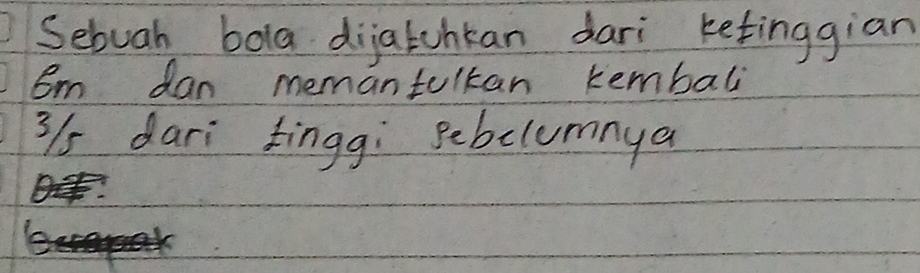 Sebuah bola dijatuhkan dari ketinggian
6m dan memantulkan kembali
3/5 dari tinggi sebelumnya